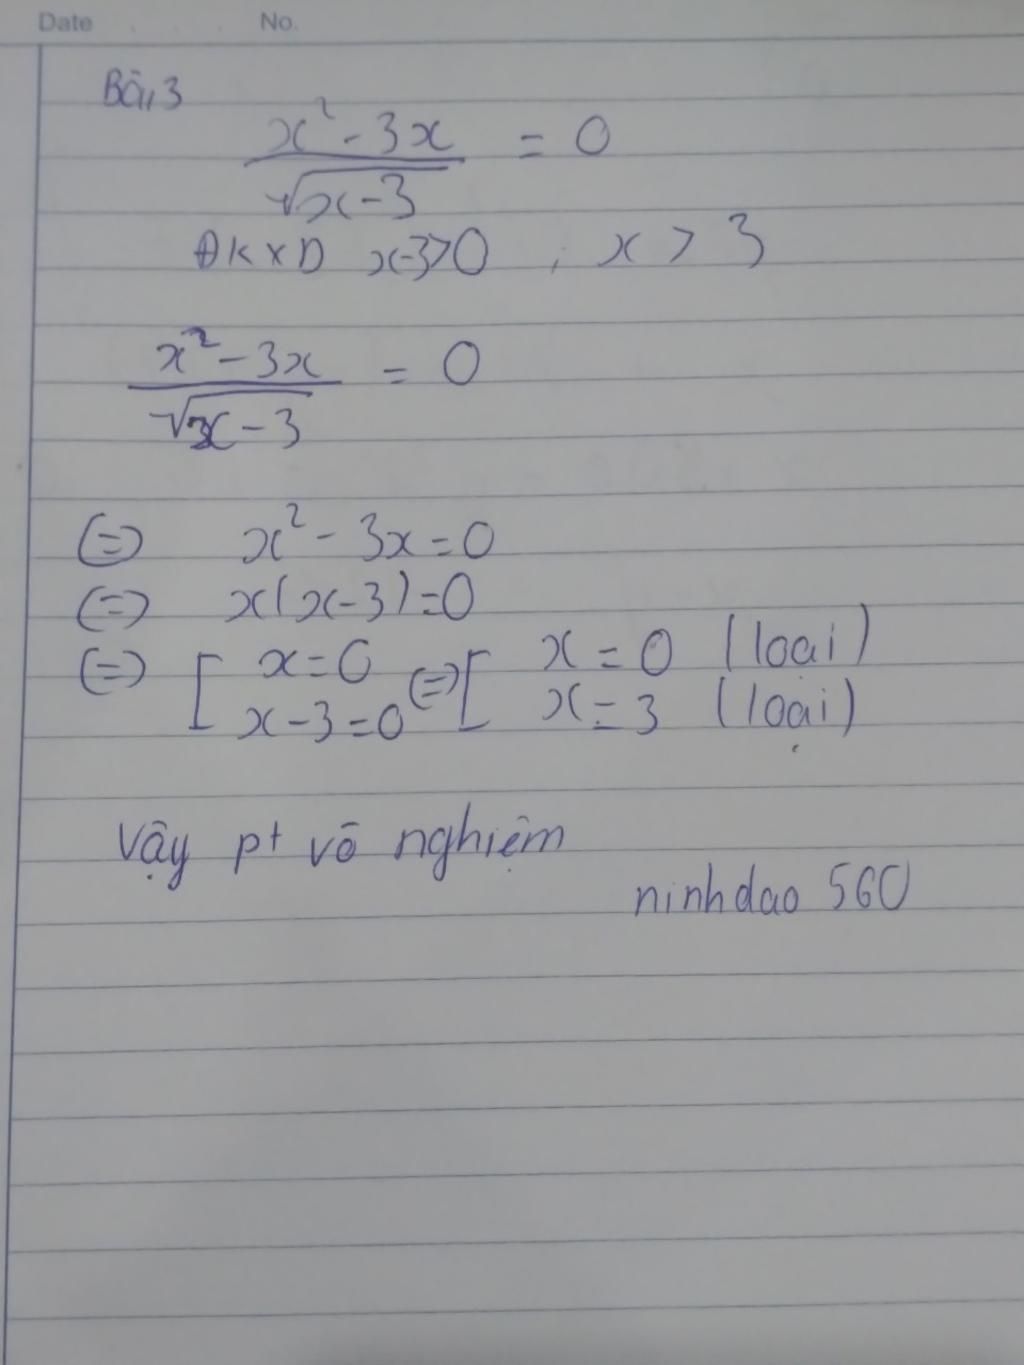 Date No.
Bài 3
x² - 3x / √x-3 = 0
ĐKXD x-3>0 , x > 3
x² - 3x / √x-3 = 0
(=) x² - 3x = 0
(=) x(x-3)=0
(=) [ x=0 (=) [ x = 0 (loại)
x-3=0 x = 3 (loại)
Vậy pt vô nghiệm
ninhdao 560